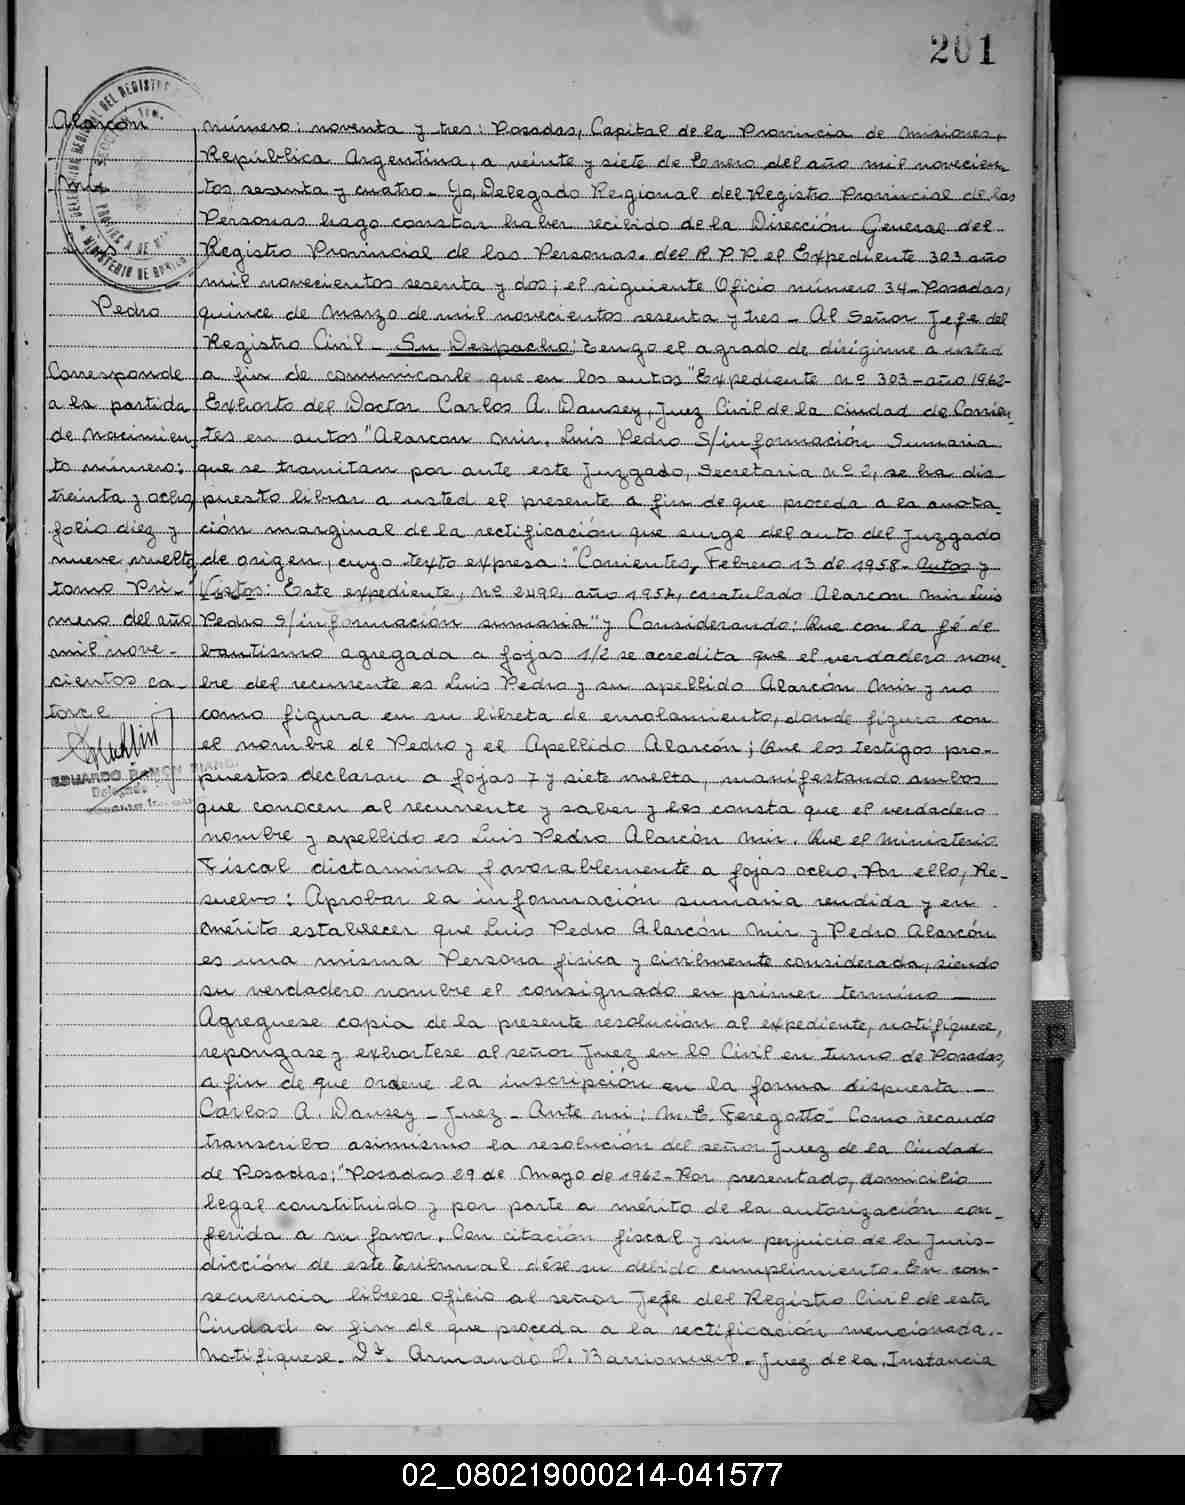 201
Alarcón
Mir
Luis
Pedro
Corresponde
a la partida
de Nacimien-
to número:
treinta y ocho,
folio diez y
nueve vuelto
tomo Pri-
mero del año
mil nove-
cientos ca-
torce
EDUARDO RAMON
Delegado
DELEGACION REGIONAL DEL REGISTRO
MINISTERIO DE
número: noventa y tres: Posadas, Capital de la Provincia de Misiones,
República Argentina, a veinte y siete de Enero del año mil novecien-
tos sesenta y cuatro- Yo, Delegado Regional del Registro Provincial de las
Personas hago constar haber recibido de la Dirección General del
Registro Provincial de las Personas. del R.P.P. el Expediente 303 año
mil novecientos sesenta y dos; el siguiente Oficio número 34- Posadas,
quince de Marzo de mil novecientos sesenta y tres- Al Señor Jefe del
Registro Civil- Su Despacho: Tengo el agrado de dirigirme a usted
a fin de comunicarle que en los autos "Expediente Nº 303- año 1962-
Exhorto del Doctor Carlos A. Dansey, Juez Civil de la Ciudad de Corrien-
tes en autos "Alarcon Mir, Luis Pedro S/información Sumaria
que se tramitan por ante este Juzgado, Secretaria Nº 2, se ha dis
puesto librar a usted el presente a fin de que proceda a la anota-
ción marginal de la rectificación que surge del auto del Juzgado
de origen, cuyo texto expresa: "Corrientes, Febrero 13 de 1958- Autos y
Vistos: Este expediente, Nº 2492, año 1957, caratulado Alarcon Mir Luis
Pedro S/información sumaria" y Considerando: Que con la fé de
bautismo agregada a fojas 1/2 se acredita que el verdadero nom-
bre del recurrente es Luis Pedro y su apellido Alarcón Mir y no
como figura en su libreta de enrolamiento, donde figura con
el nombre de Pedro y el Apellido Alarcón; Que los testigos pro-
puestos declaran a fojas 7 y siete vuelta, manifestando ambos
que conocen al recurrente y saber y les consta que el verdadero
nombre y apellido es Luis Pedro Alarcón Mir. Que el Ministerio
Fiscal dictamina favorablemente a fojas ocho. Por ello, Re-
suelvo: Aprobar la información sumaria rendida y en
mérito establecer que Luis Pedro Alarcón Mir y Pedro Alarcón
es una misma Persona física y civilmente considerada, siendo
su verdadero nombre el consignado en primer término-
Agreguese copia de la presente resolución al expediente, notifiquese,
repongase y exhortese al señor Juez en lo Civil en turno de Posadas,
a fin de que ordene la inscripción en la forma dispuesta-
Carlos A. Dansey- Juez- Ante mi: M. E. Feregotto". Como recaudo
transcribo asimismo la resolución del señor Juez de la Ciudad
de Posadas: "Posadas 29 de Mayo de 1962- Por presentado, domicilio
legal constituido y por parte a mérito de la autorización con-
ferida a su favor. Con citación fiscal y sin perjuicio de la Juris-
dicción de este Tribunal dése su debido cumplimiento. En con-
secuencia librese oficio al señor Jefe del Registro Civil de esta
Ciudad a fin de que proceda a la rectificación mencionada.-
Notifiquese. Dr. Armando O. Barrionuevo- Juez de 1a. Instancia
02_080219000214-041577